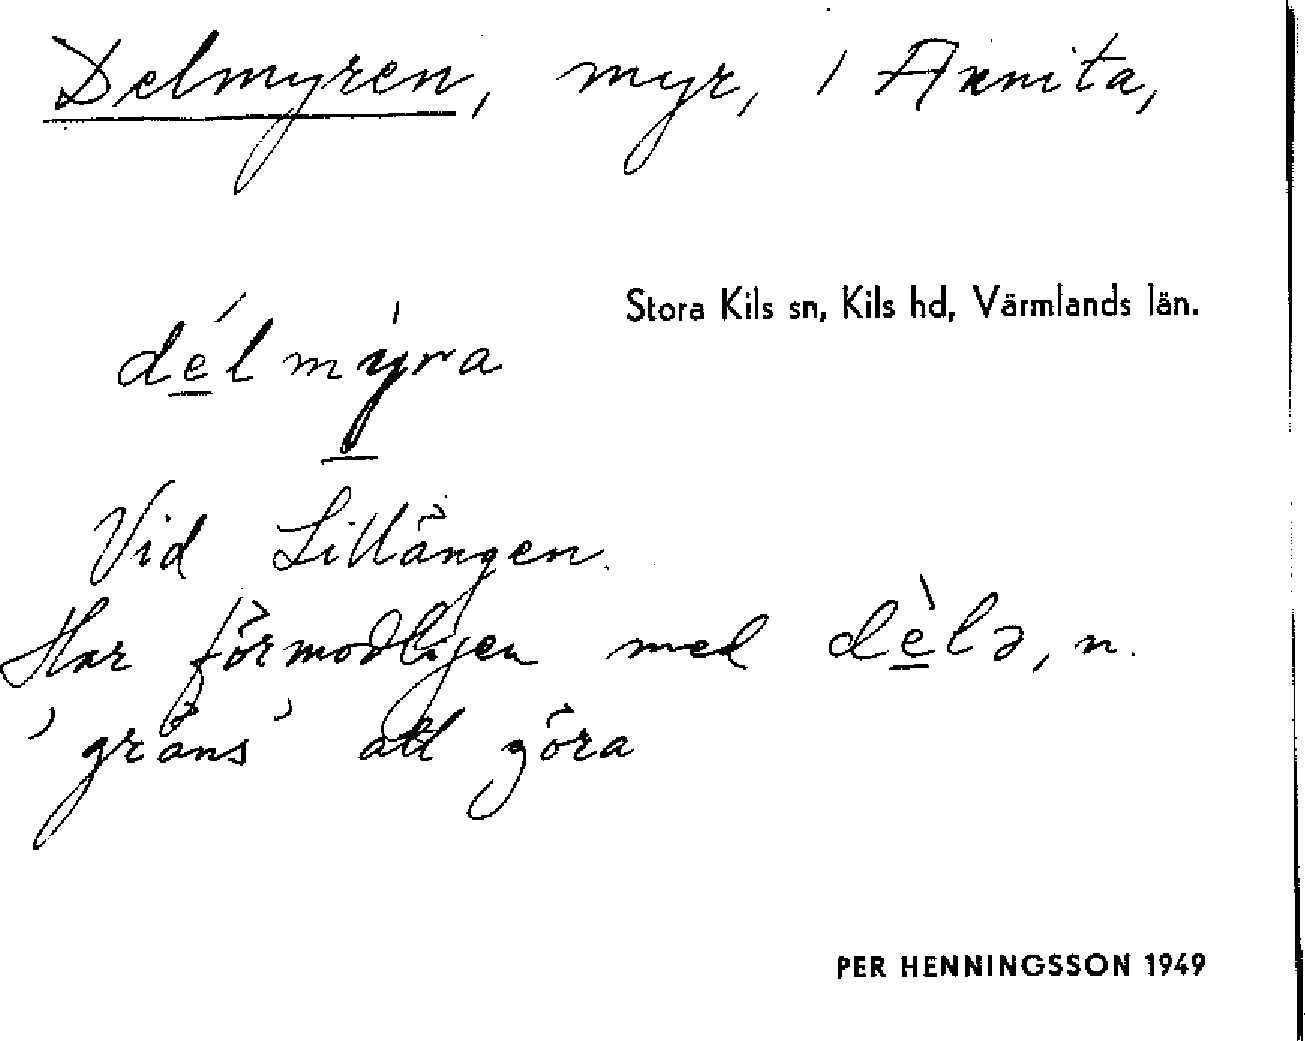 Delmyren, myr, i Annita,
Stora Kils sn, Kils hd, Värmlands län.
délmýra
Vid Lillängen.
Har förmodligen med dèlə, n.
'gräns' att göra
PER HENNINGSSON 1949